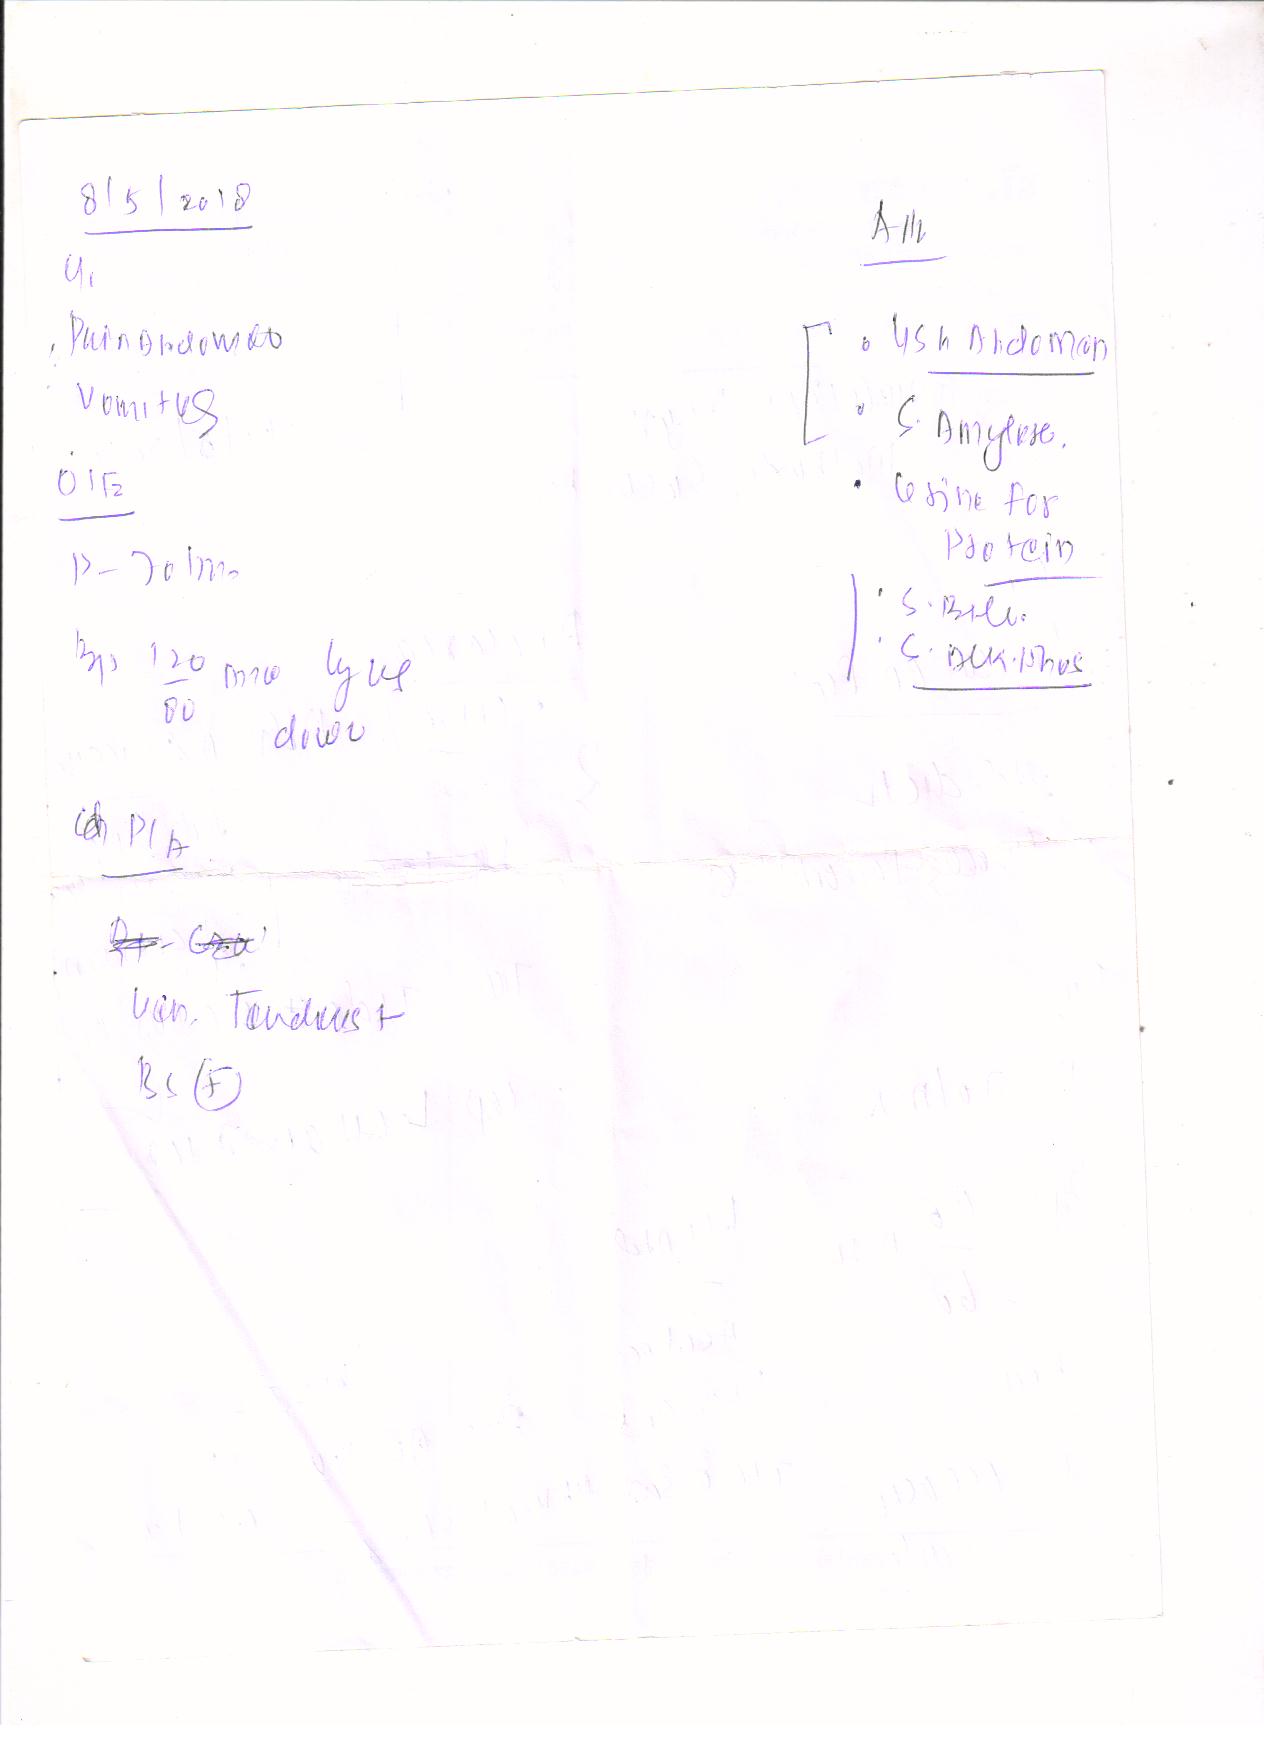 8/5/2018
Pain Abdomen
Vomiting
O/E
P - 70/m
Bp 120/80 mm lying
down
P/A
Tenderness +
BS (+)
Adv
• USG Abdomen
• S. Amylase.
• Urine for
Protein
• S. Bili.
• S. Alk. Phos